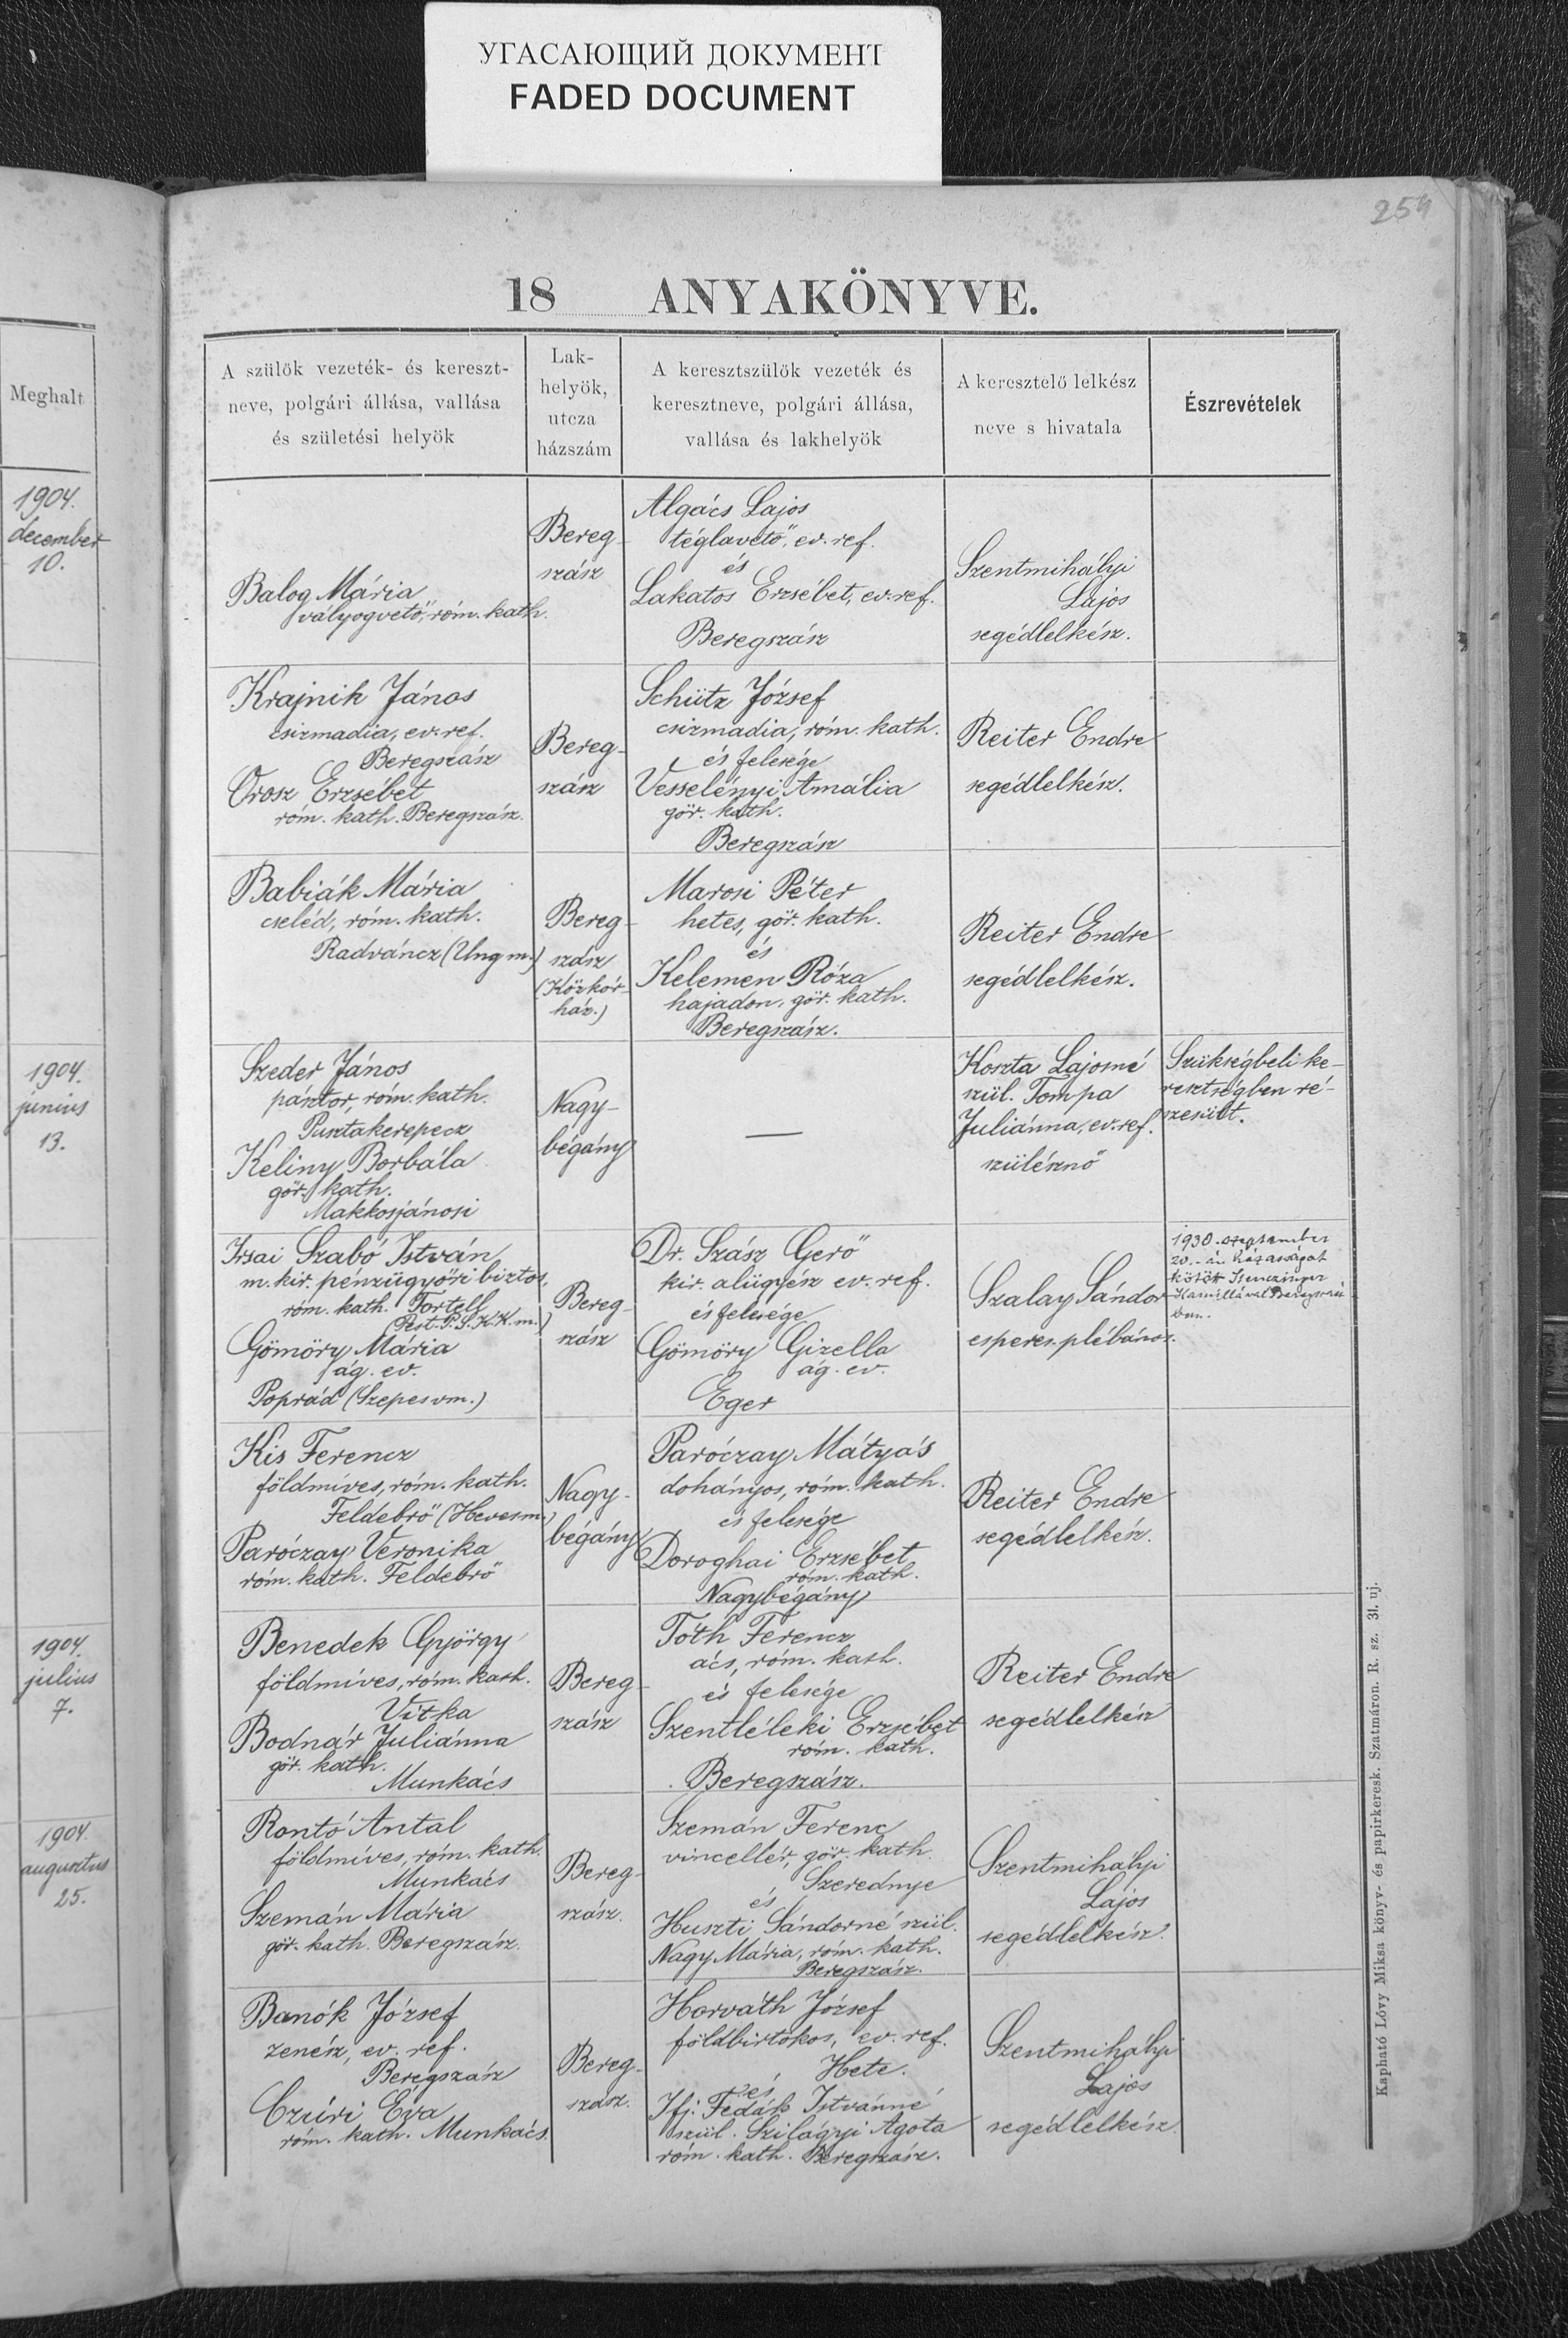 УГАСАЮЩИЙ ДОКУМЕНТ
FADED DOCUMENT
254
18 ANYAKÖNYVE.
Meghalt
1904.
december
10.
1904.
junius
13.
1904.
julius
7.
1904.
augusztus
25.
A szülők vezeték- és kereszt-
neve, polgári állása, vallása
és születési helyök
Lak-
helyök,
utcza
házszám
A keresztszülők vezeték és
keresztneve, polgári állása,
vallása és lakhelyök
A keresztelő lelkész
neve s hivatala
Észrevételek
Balog Mária
vályogvető, róm. kath.
Bereg-
szász
Algács Lajos
téglavető, ev. ref.
és
Lakatos Erzsébet, ev. ref.
Beregszász
Szentmihályi
Lajos
segédlelkész.
Krajnik János
csizmadia, ev. ref.
Beregszász
Orosz Erzsébet
róm. kath. Beregszász.
Bereg-
szász
Schütz József
csizmadia, róm. kath.
és felesége
Vesselényi Amália
gör. kath.
Beregszász
Reiter Endre
segédlelkész.
Babiák Mária
cseléd, róm. kath.
Radváncz (Ung m.)
Bereg-
szász
(Közkór-
ház.)
Marosi Péter
hetes, gör. kath.
és
Kelemen Róza
hajadon, gör. kath.
Beregszász.
Reiter Endre
segédlelkész.
Szeder János
pásztor, róm. kath.
Pusztakerepecz
Keliny Borbála
gör. kath.
Makkosjánosi
Nagy-
bégány
—
Koszta Lajosné
szül. Tompa
Juliánna, ev. ref.
szülésznő
Szükségbeli ke-
resztségben ré-
szesült.
Irsai Szabó István
m. kir. pénzügyőri biztos,
róm. kath. Törtell
(Pest. P. S. K. K. m.)
Gömöry Mária
ág. ev.
Poprád (Szepes vm.)
Bereg-
szász
Dr. Szász Gerő
kir. alügyész ev. ref.
és felesége
Gömöry Gizella
ág. ev.
Eger
Szalay Sándor
esperes. plébános.
1930. szeptember
20.-án házasságot
kötött
Kamillával Beregszász-
ban.
Kis Ferencz
földmíves, róm. kath.
Feldebrő (Heves m.)
Paróczay Veronika
róm. kath. Feldebrő
Nagy-
bégány
Paróczay Mátyás
dohányos, róm. kath.
és felesége
Doroghai Erzsébet
róm. kath.
Nagybégány
Reiter Endre
segédlelkész.
Benedek György
földmíves, róm. kath.
Vitka
Bodnár Juliánna
gör. kath.
Munkács
Bereg-
szász
Tóth Ferencz
ács, róm. kath.
és felesége
Szentléleki Erzsébet
róm. kath.
Beregszász.
Reiter Endre
segédlelkész
Rontó Antal
földmíves, róm. kath.
Munkács
Szemán Mária
gör. kath. Beregszász.
Bereg-
szász.
Szemán Ferenc
vincellér, gör. kath.
Szerednye
és
Huszti Sándorné szül.
Nagy Mária, róm. kath.
Beregszász.
Szentmihalyi
Lajos
segédlelkész.
Banók József
zenész, ev. ref.
Beregszász
Czúri Éva
róm. kath. Munkács.
Bereg-
szász.
Horváth József
földbirtokos, ev. ref.
Hete.
és
Ifj. Fedák Istvánné
szül. Szilágyi Ágota
róm. kath. Beregszász.
Szentmihályi
Lajos
segédlelkész
Kapható Lóvy Miksa könyv- és papirkeresk. Szatmáron. R. sz. 31. uj.